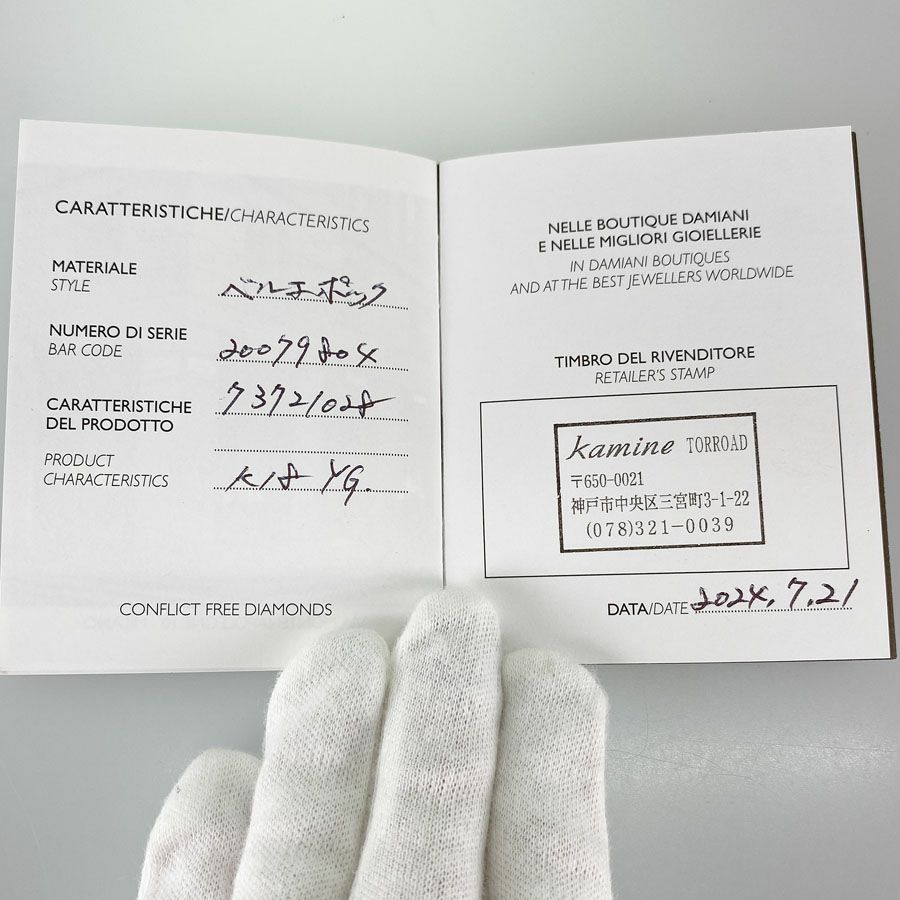 CARATTERISTICHE/CHARACTERISTICS
MATERIALE
STYLE
ベルエポック
NUMERO DI SERIE
BAR CODE
20079804
73721028
CARATTERISTICHE
DEL PRODOTTO
PRODUCT
CHARACTERISTICS
K18 YG.
CONFLICT FREE DIAMONDS
NELLE BOUTIQUE DAMIANI
E NELLE MIGLIORI GIOIELLERIE
IN DAMIANI BOUTIQUES
AND AT THE BEST JEWELLERS WORLDWIDE
TIMBRO DEL RIVENDITORE
RETAILER'S STAMP
kamine TORROAD
〒650-0021
神戸市中央区三宮町3-1-22
(078)321-0039
DATA/DATE 2024.7.21